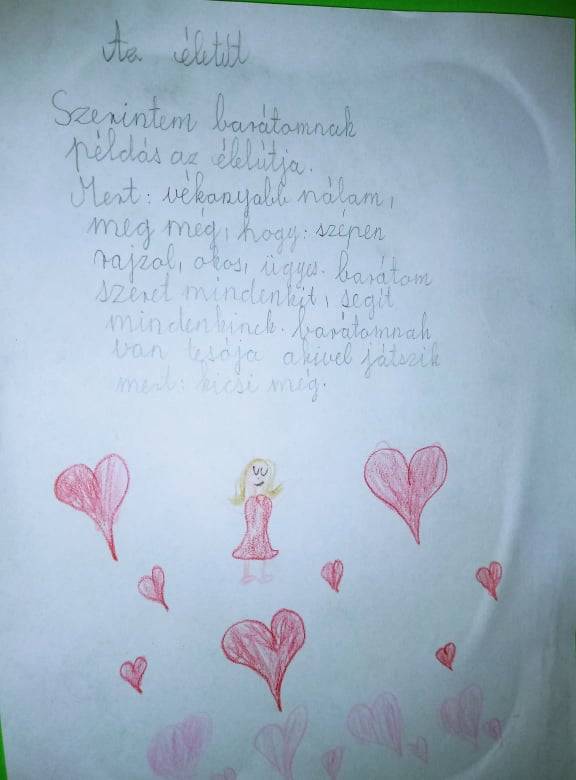 Az életút
Szerintem barátomnak
példás az életútja.
Mert: vékonyabb nálam,
meg még, hogy: szépen
rajzol, okos, ügyes. barátom
szeret mindenkit, segít
mindenkinek. barátomnak
van tesója akivel játszik
mert: kicsi még.